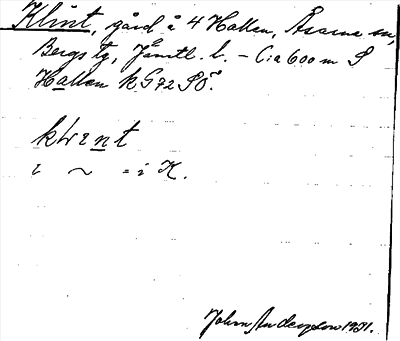 Klint, gård å 4 Hallen, Åsarna sn,
Bergs tg, Jämtl. l. – C:a 600 m S
Hallen kG72SÖ.
klent
i ~ = i K.
John Andersson 1931.